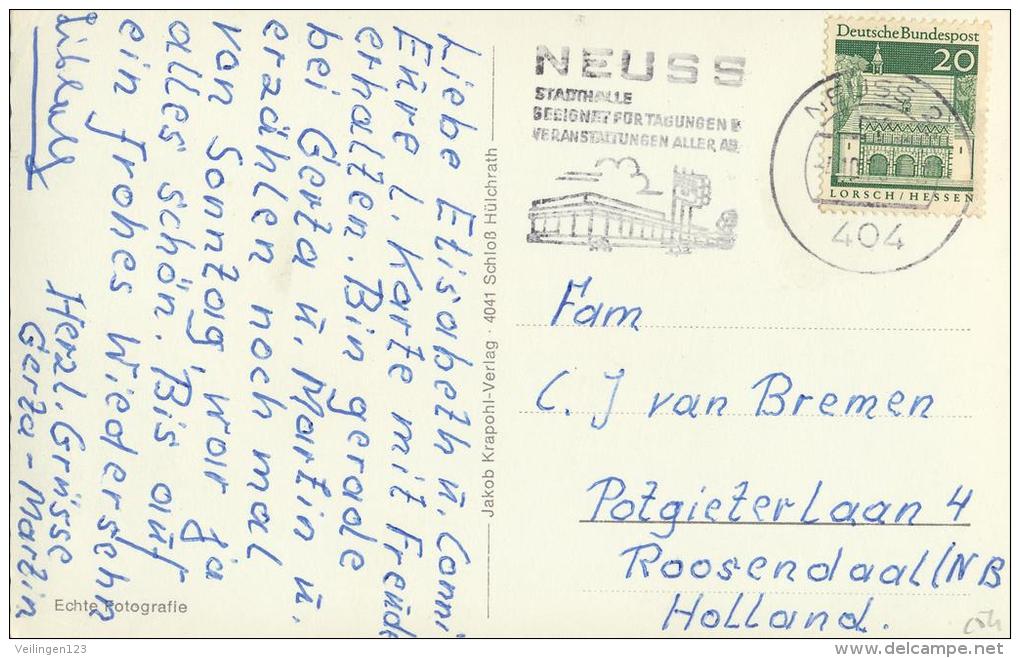 Liebe Elisabeth u. Conni
Eure l. Karte mit Freude
erhalten. Bin gerade
bei Gerta u. Martin u.
erzählen noch mal
von Sonntag, war ja
alles schön. Bis auf
ein frohes Wiedersehn
Herzl. Grüsse
Gerta - Martin
Echte Fotografie
Jakob Krapohl-Verlag · 4041 Schloß Hülchrath
NEUSS
STADTHALLE
GEEIGNET FÜR TAGUNGEN &
VERANSTALTUNGEN ALLER
NEUSS 2
404
Deutsche Bundespost
20
LORSCH/HESSEN
Fam
C. J van Bremen
Potgieterlaan 4
Roosendaal/NB
Holland.
Veilingen123
delcampe.net